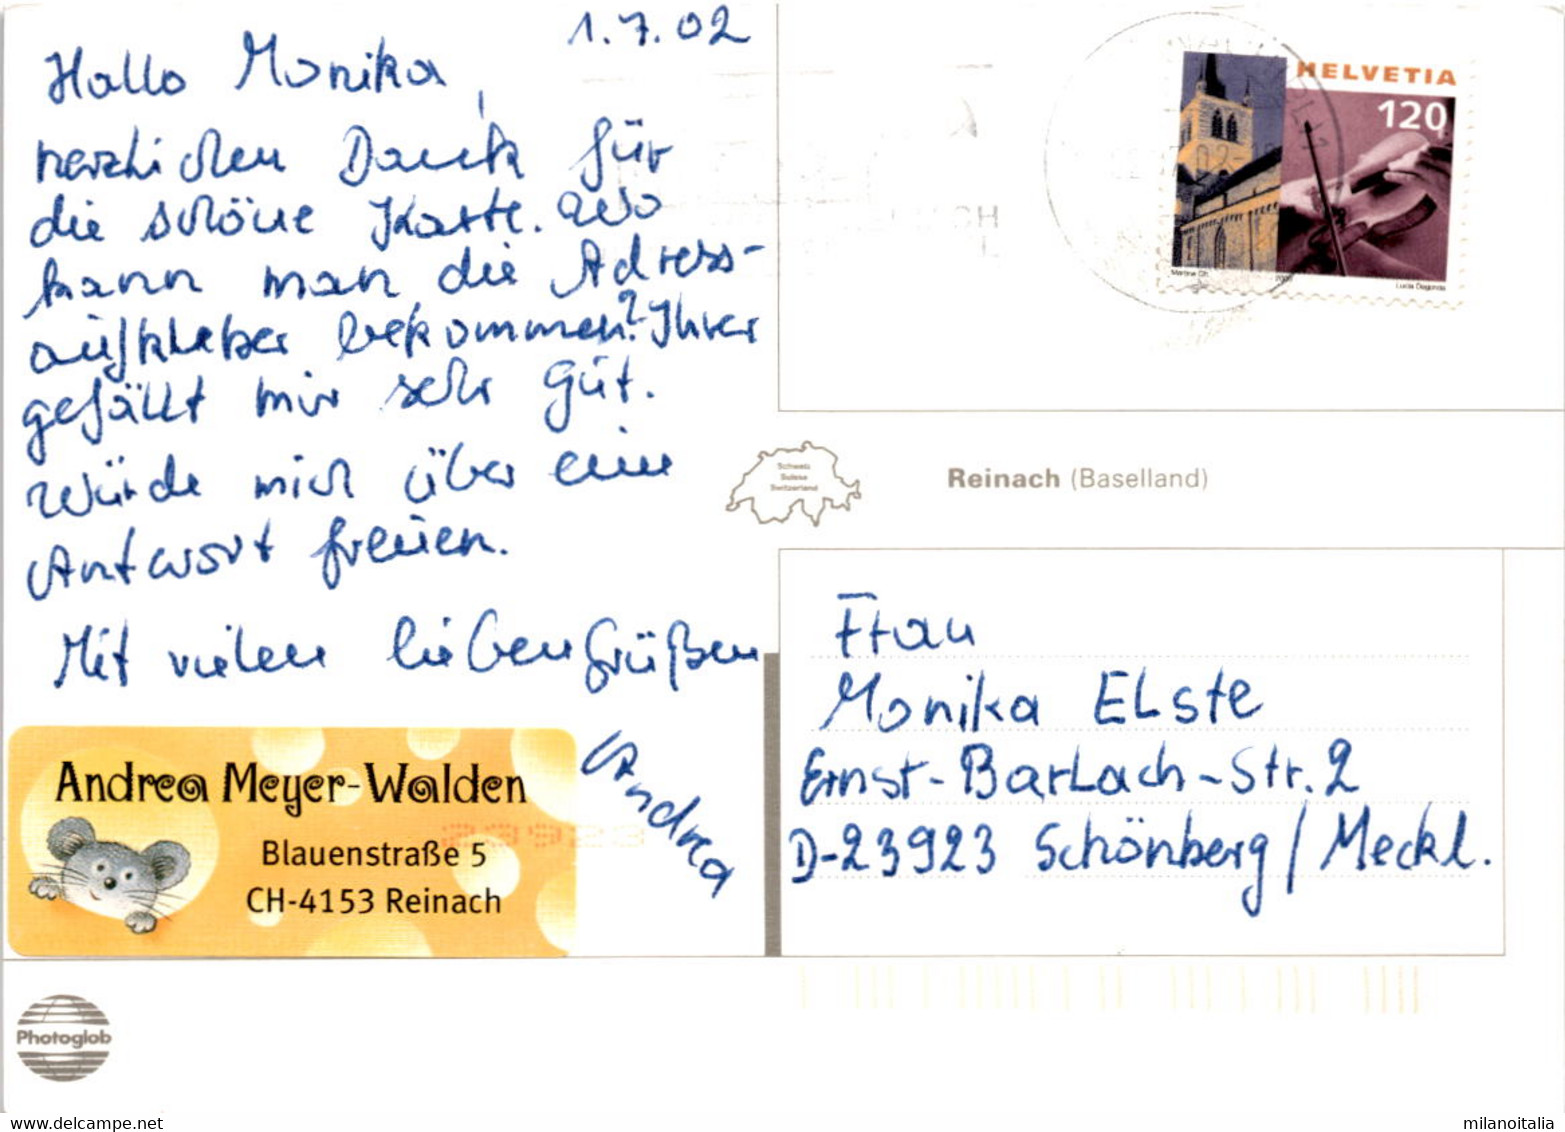 1.7.02
Hallo Monika,
herzlichen Dank für
die schöne Karte. Wo
kann man die Adress-
aufkleber bekommen? Ihrer
gefällt mir sehr gut.
Würde mich über eine
Antwort freuen.
Mit vielen lieben Grüßen
Andrea
Andrea Meyer-Walden
Blauenstraße 5
CH-4153 Reinach
Photoglob
HELVETIA
120
Schweiz
Suisse
Switzerland
Reinach (Baselland)
Frau
Monika Elste
Ernst-Barlach-Str. 2
D-23923 Schönberg / Meckl.
www.delcampe.net
milanoitalia